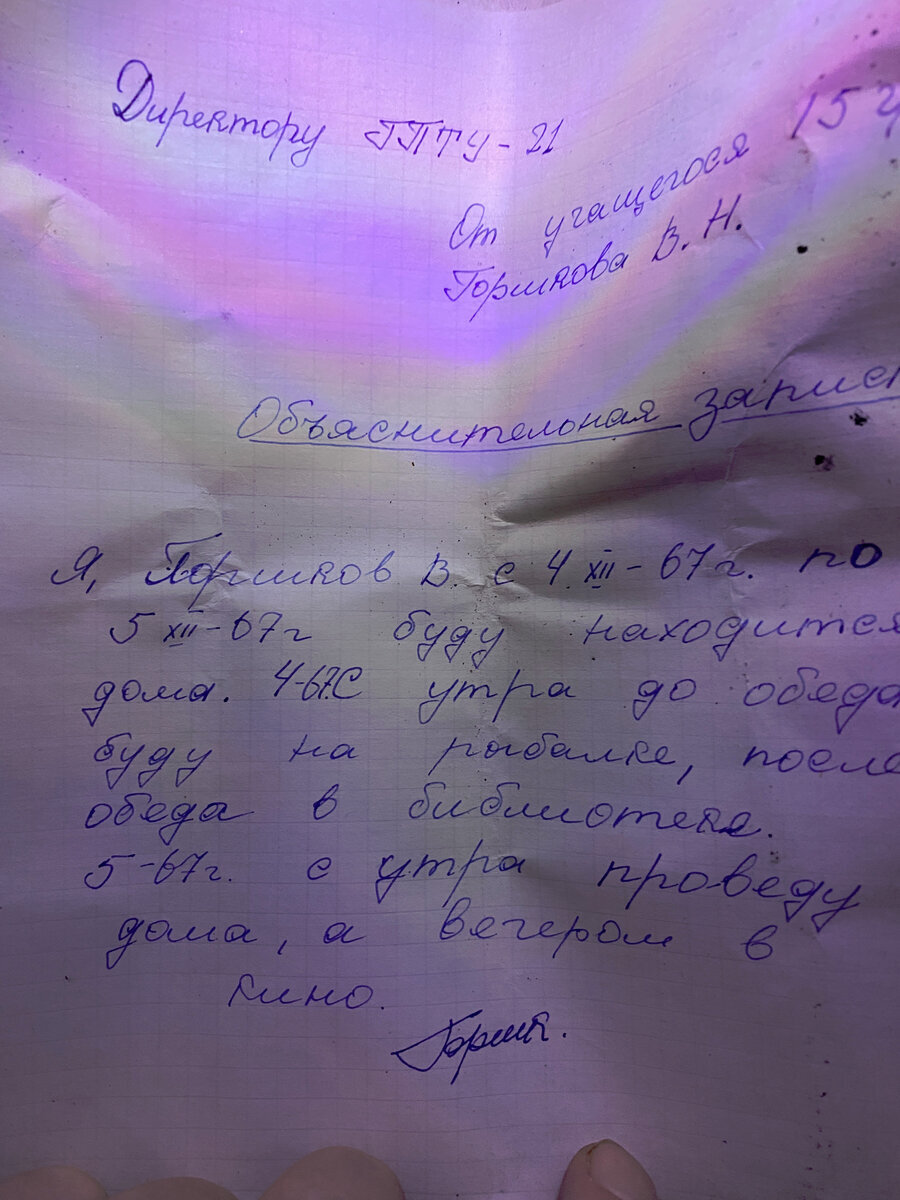 Директору ГПТУ-21
От учащегося 15
Горшкова В. Н.
Объяснительная запис
Я, Горшков В. с 4 XII-67г. по
5 XII-67г буду находится
дома. 4-67.С утра до обеда
буду на рыбалке, после
обеда в библиотеке.
5-67г. с утра проведу
дома, а вечером в
кино.
Горшк.